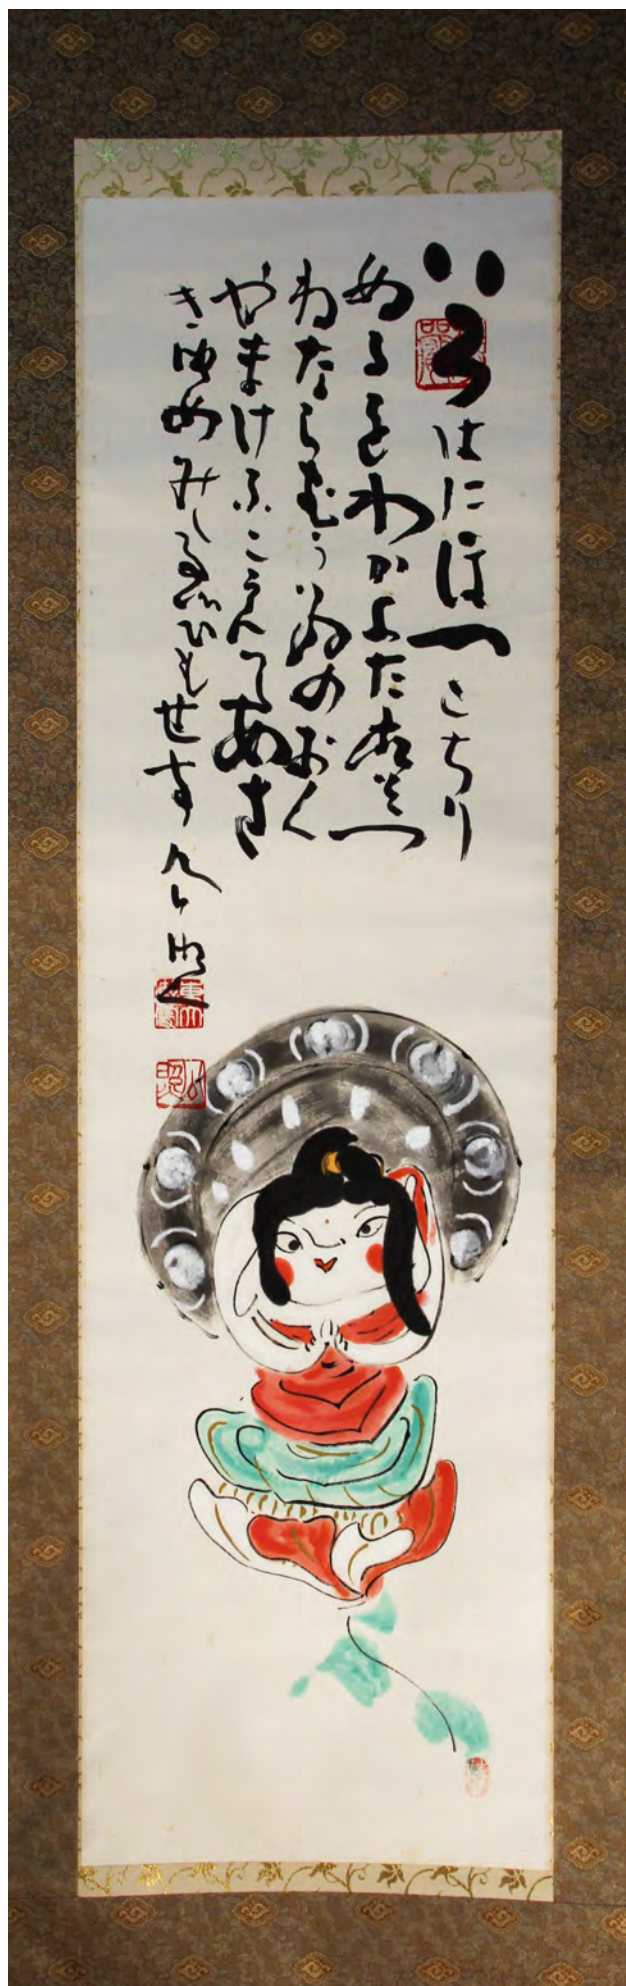 いろはにほへとちり
ぬるをわかよたれそつ
ねならむうゐのおく
やまけふこえてあさ
きゆめみしゑひもせす